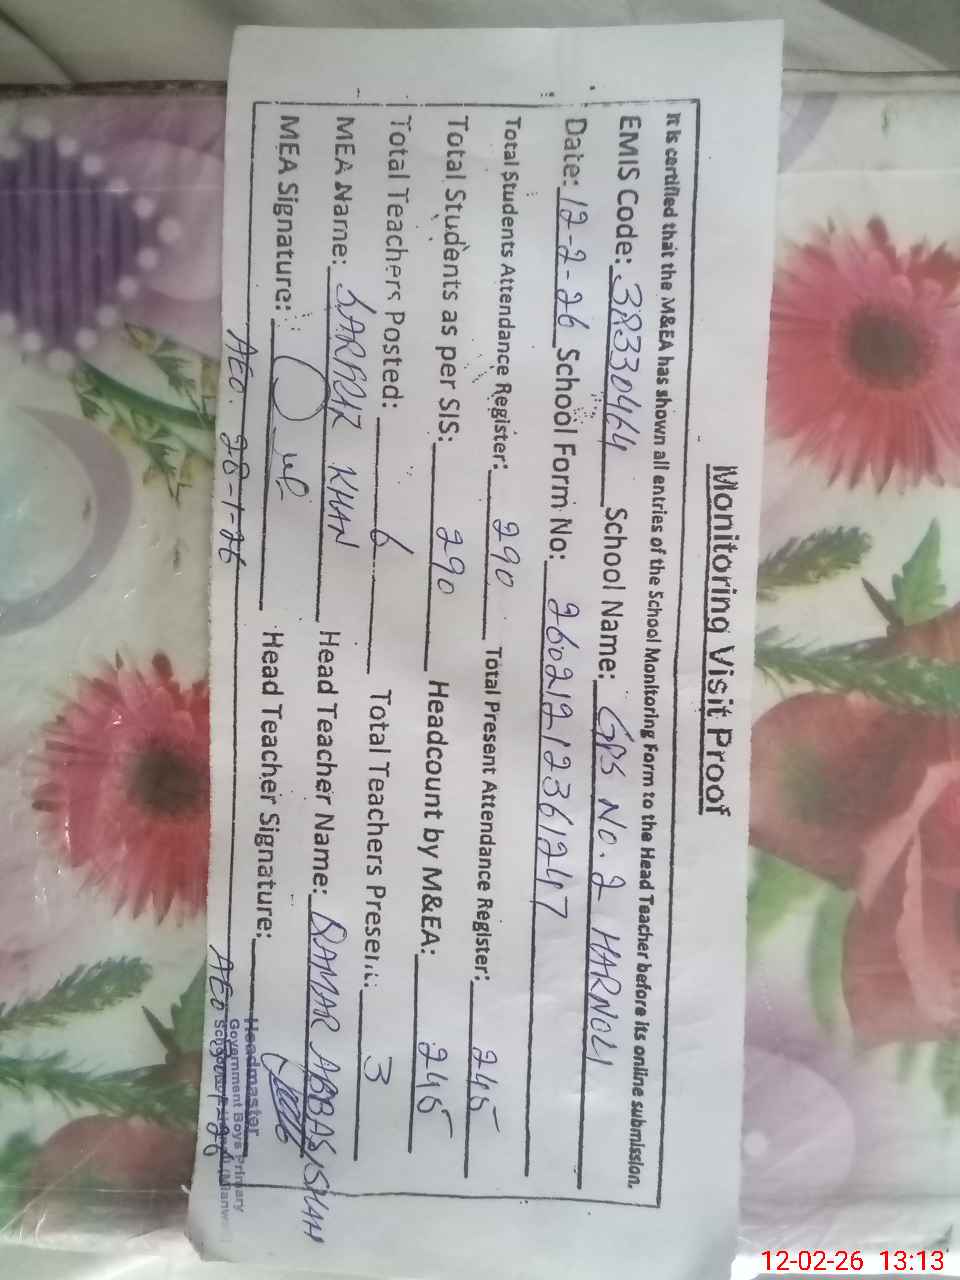 Monitoring Visit Proof
It is certified that the M&EA has shown all entries of the School Monitoring Form to the Head Teacher before its online submission.
EMIS Code: 38330464 School Name: GPS No. 2 HARNOLI
Date: 12-2-26 School Form No: 26021212361247
Total Students Attendance Register: 290 Total Present Attendance Register: 245
Total Students as per SIS: 290 Headcount by M&EA: 245
Total Teachers Posted: 6 Total Teachers Present: 3
MEA Name: KHAN Head Teacher Name: QAMAR ABBAS SHAH
MEA Signature: Head Teacher Signature:
AEO. 28-1-26 AEO
Headmaster
Government Boys Primary
12-02-26 13:13